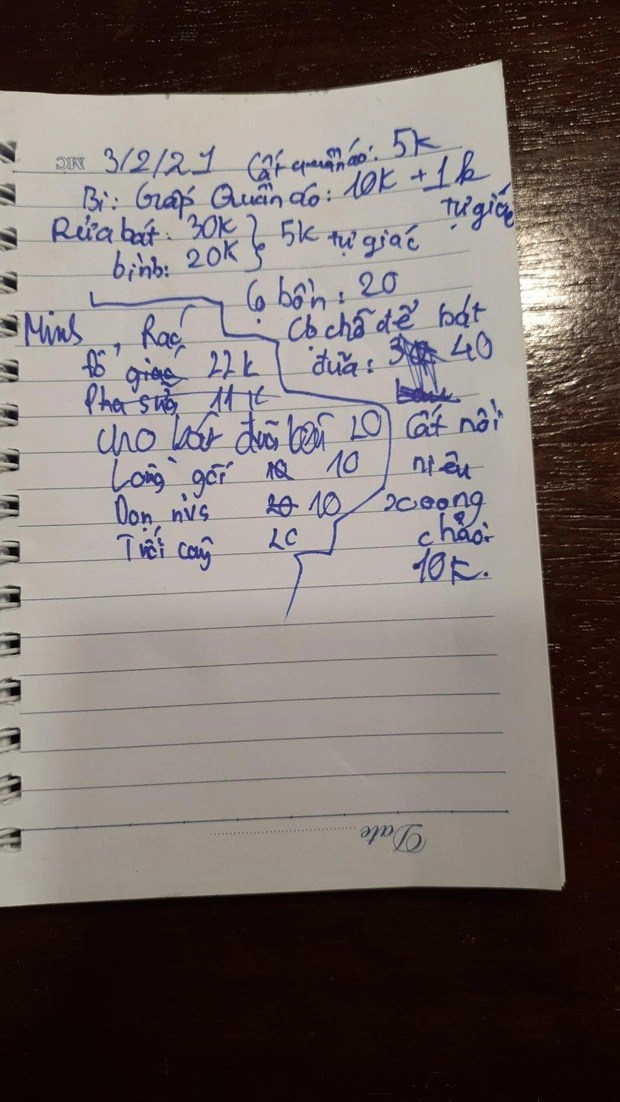 3/2/21 Cất quần áo: 5k
Bi: Gấp Quần áo: 10k + 1k
tự giác
Rửa bát: 30k } 5k tự giác
bình: 20k
Cọ bồn: 20
Minh
Cọ chỗ để bát
đũa: 40
Đổ Rác 22k
Pha sữa 11k
cho bát đũa
Lồng gối 10 10
Dọn nvs 20 10
Tưới cây
Cất nồi
niêu
xoong
chảo:
10k.
Date